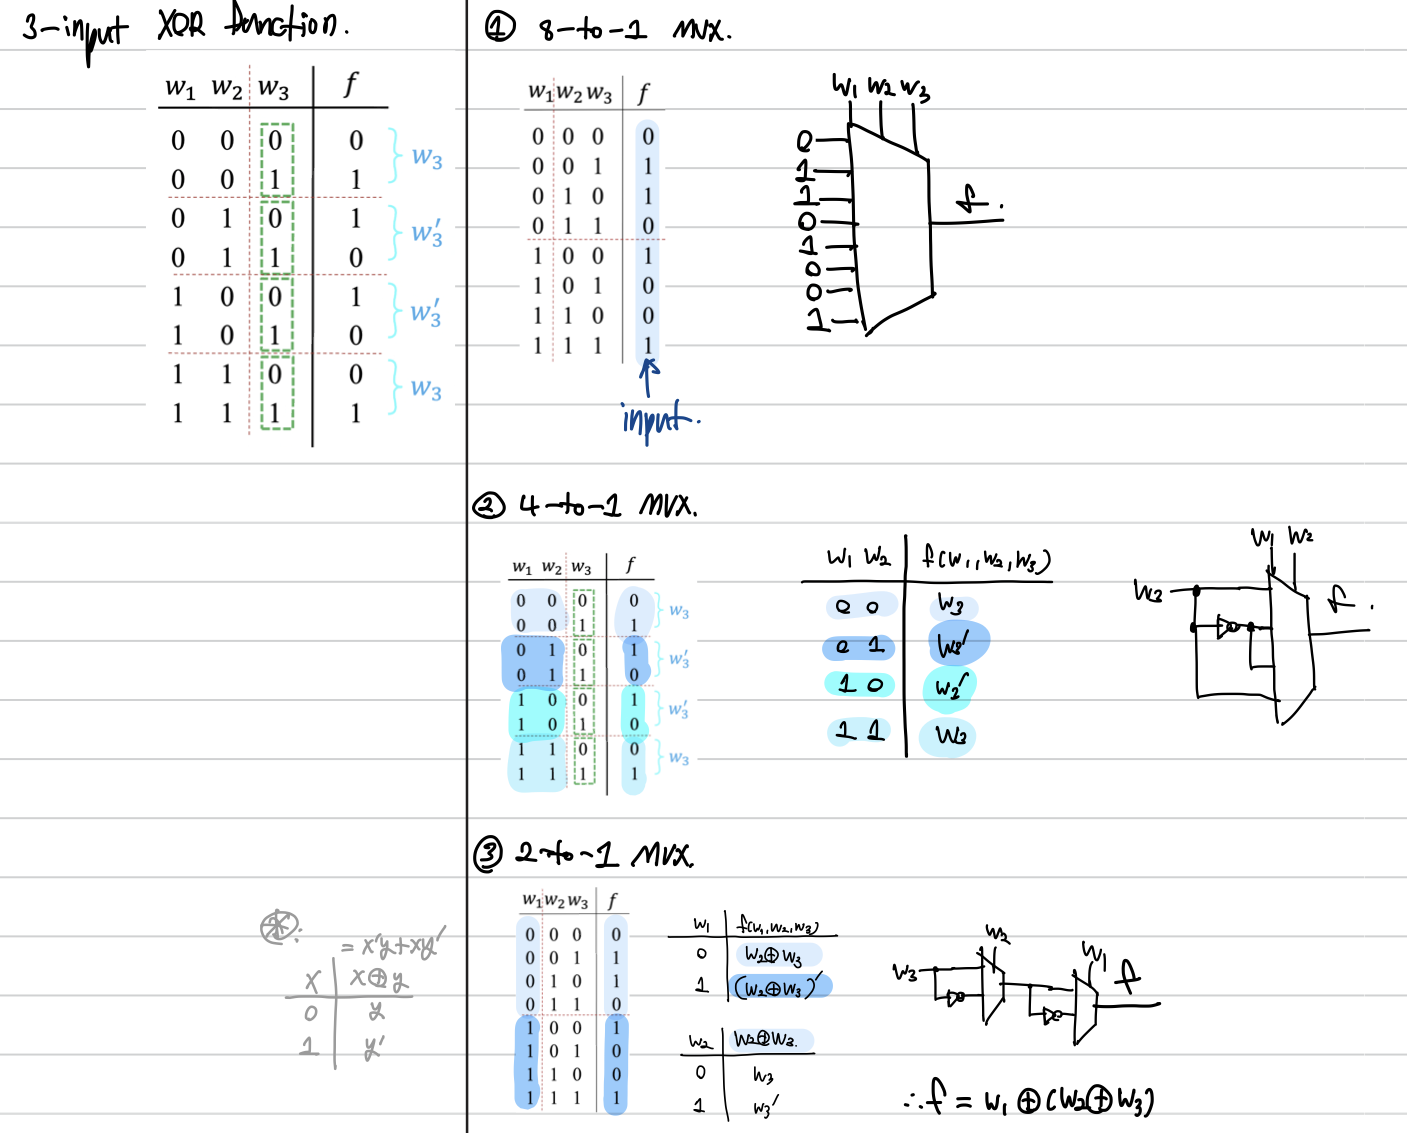 3-input XOR function.
w₁ w₂ w₃ f
0 0 0 0
0 0 1 1
w₃
0 1 0 1
0 1 1 0
w₃′
1 0 0 1
1 0 1 0
w₃′
1 1 0 0
1 1 1 1
w₃
① 8-to-1 MUX.
w₁ w₂ w₃ f
0 0 0 0
0 0 1 1
0 1 0 1
0 1 1 0
1 0 0 1
1 0 1 0
1 1 0 0
1 1 1 1
input.
W₁ W₂ W₃
0
1
1
0
1
0
0
1
f.
② 4-to-1 MUX.
w₁ w₂ w₃ f
0 0 0 0
0 0 1 1
w₃
0 1 0 1
0 1 1 0
w₃′
1 0 0 1
1 0 1 0
w₃′
1 1 0 0
1 1 1 1
w₃
W₁ W₂ f(W₁,W₂,W₃)
0 0 W₃
0 1 W₃′
1 0 W₃′
1 1 W₃
W₁ W₂
W₃
f.
③ 2-to-1 MUX.
w₁ w₂ w₃ f
0 0 0 0
0 0 1 1
0 1 0 1
0 1 1 0
1 0 0 1
1 0 1 0
1 1 0 0
1 1 1 1
W₁ f(W₁,W₂,W₃)
0 W₂⊕W₃
1 (W₂⊕W₃)′
W₂ W₂⊕W₃.
0 W₃
1 W₃′
W₂
W₃
W₁
f
∴ f = W₁ ⊕ (W₂⊕W₃)
※:
= x′y+xy′
x x⊕y
0 y
1 y′